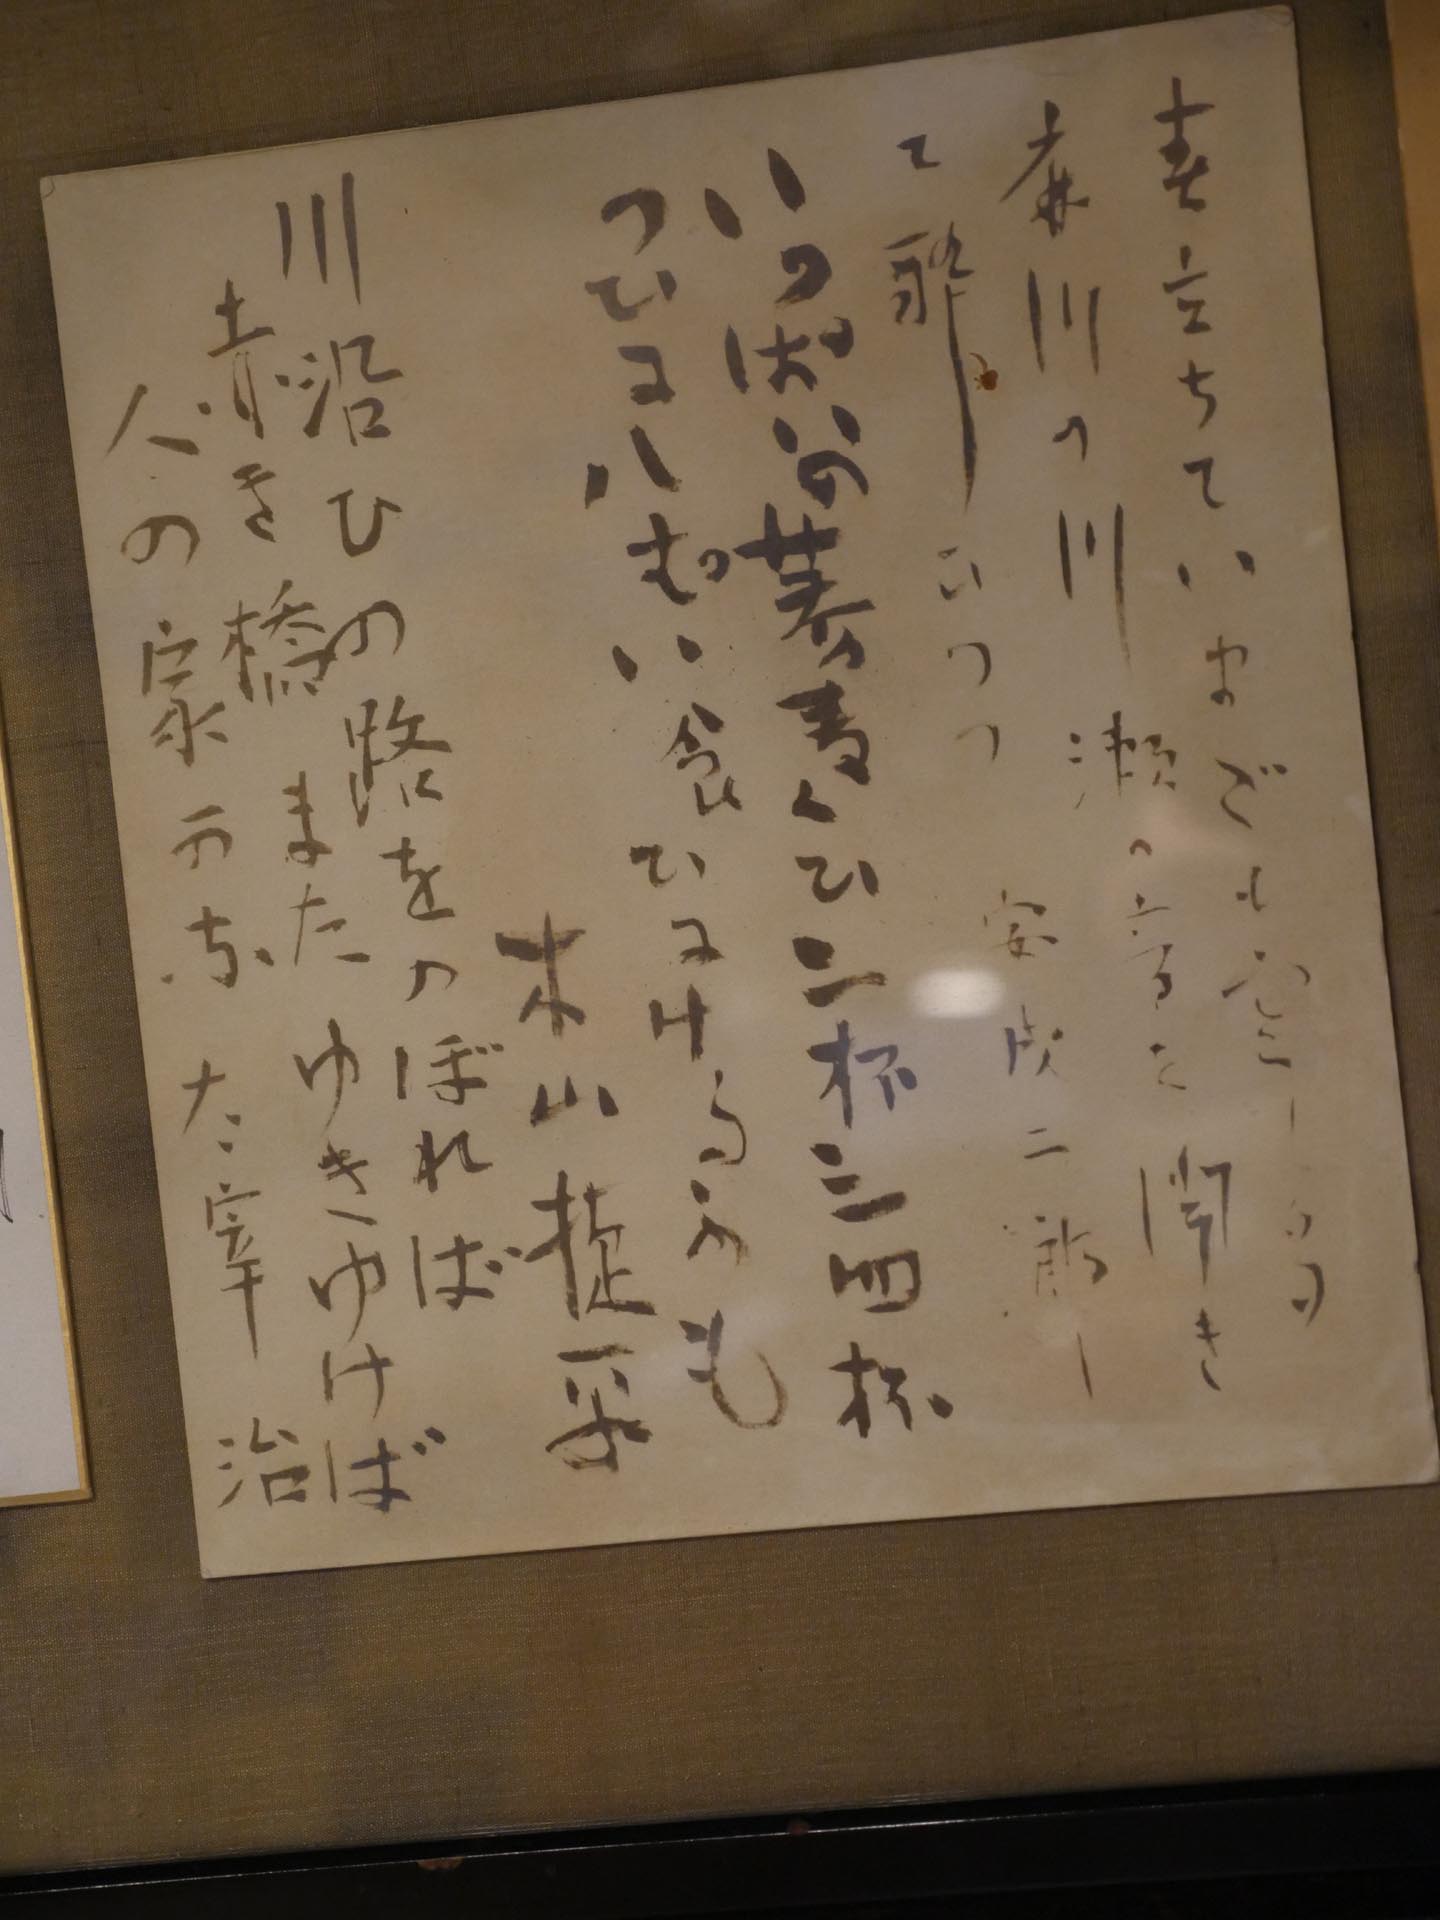 春立ちていまだも寒し
森川の川瀬の音を聞き
て酔ひつつ 安成二郎
いっぱいの蕎麦くひ二杯三四杯
つひに八ぱい食ひにけるかも
木山捷平
川沿ひの路をのぼれば
赤き橋 またゆきゆけば
人の家かな 太宰治